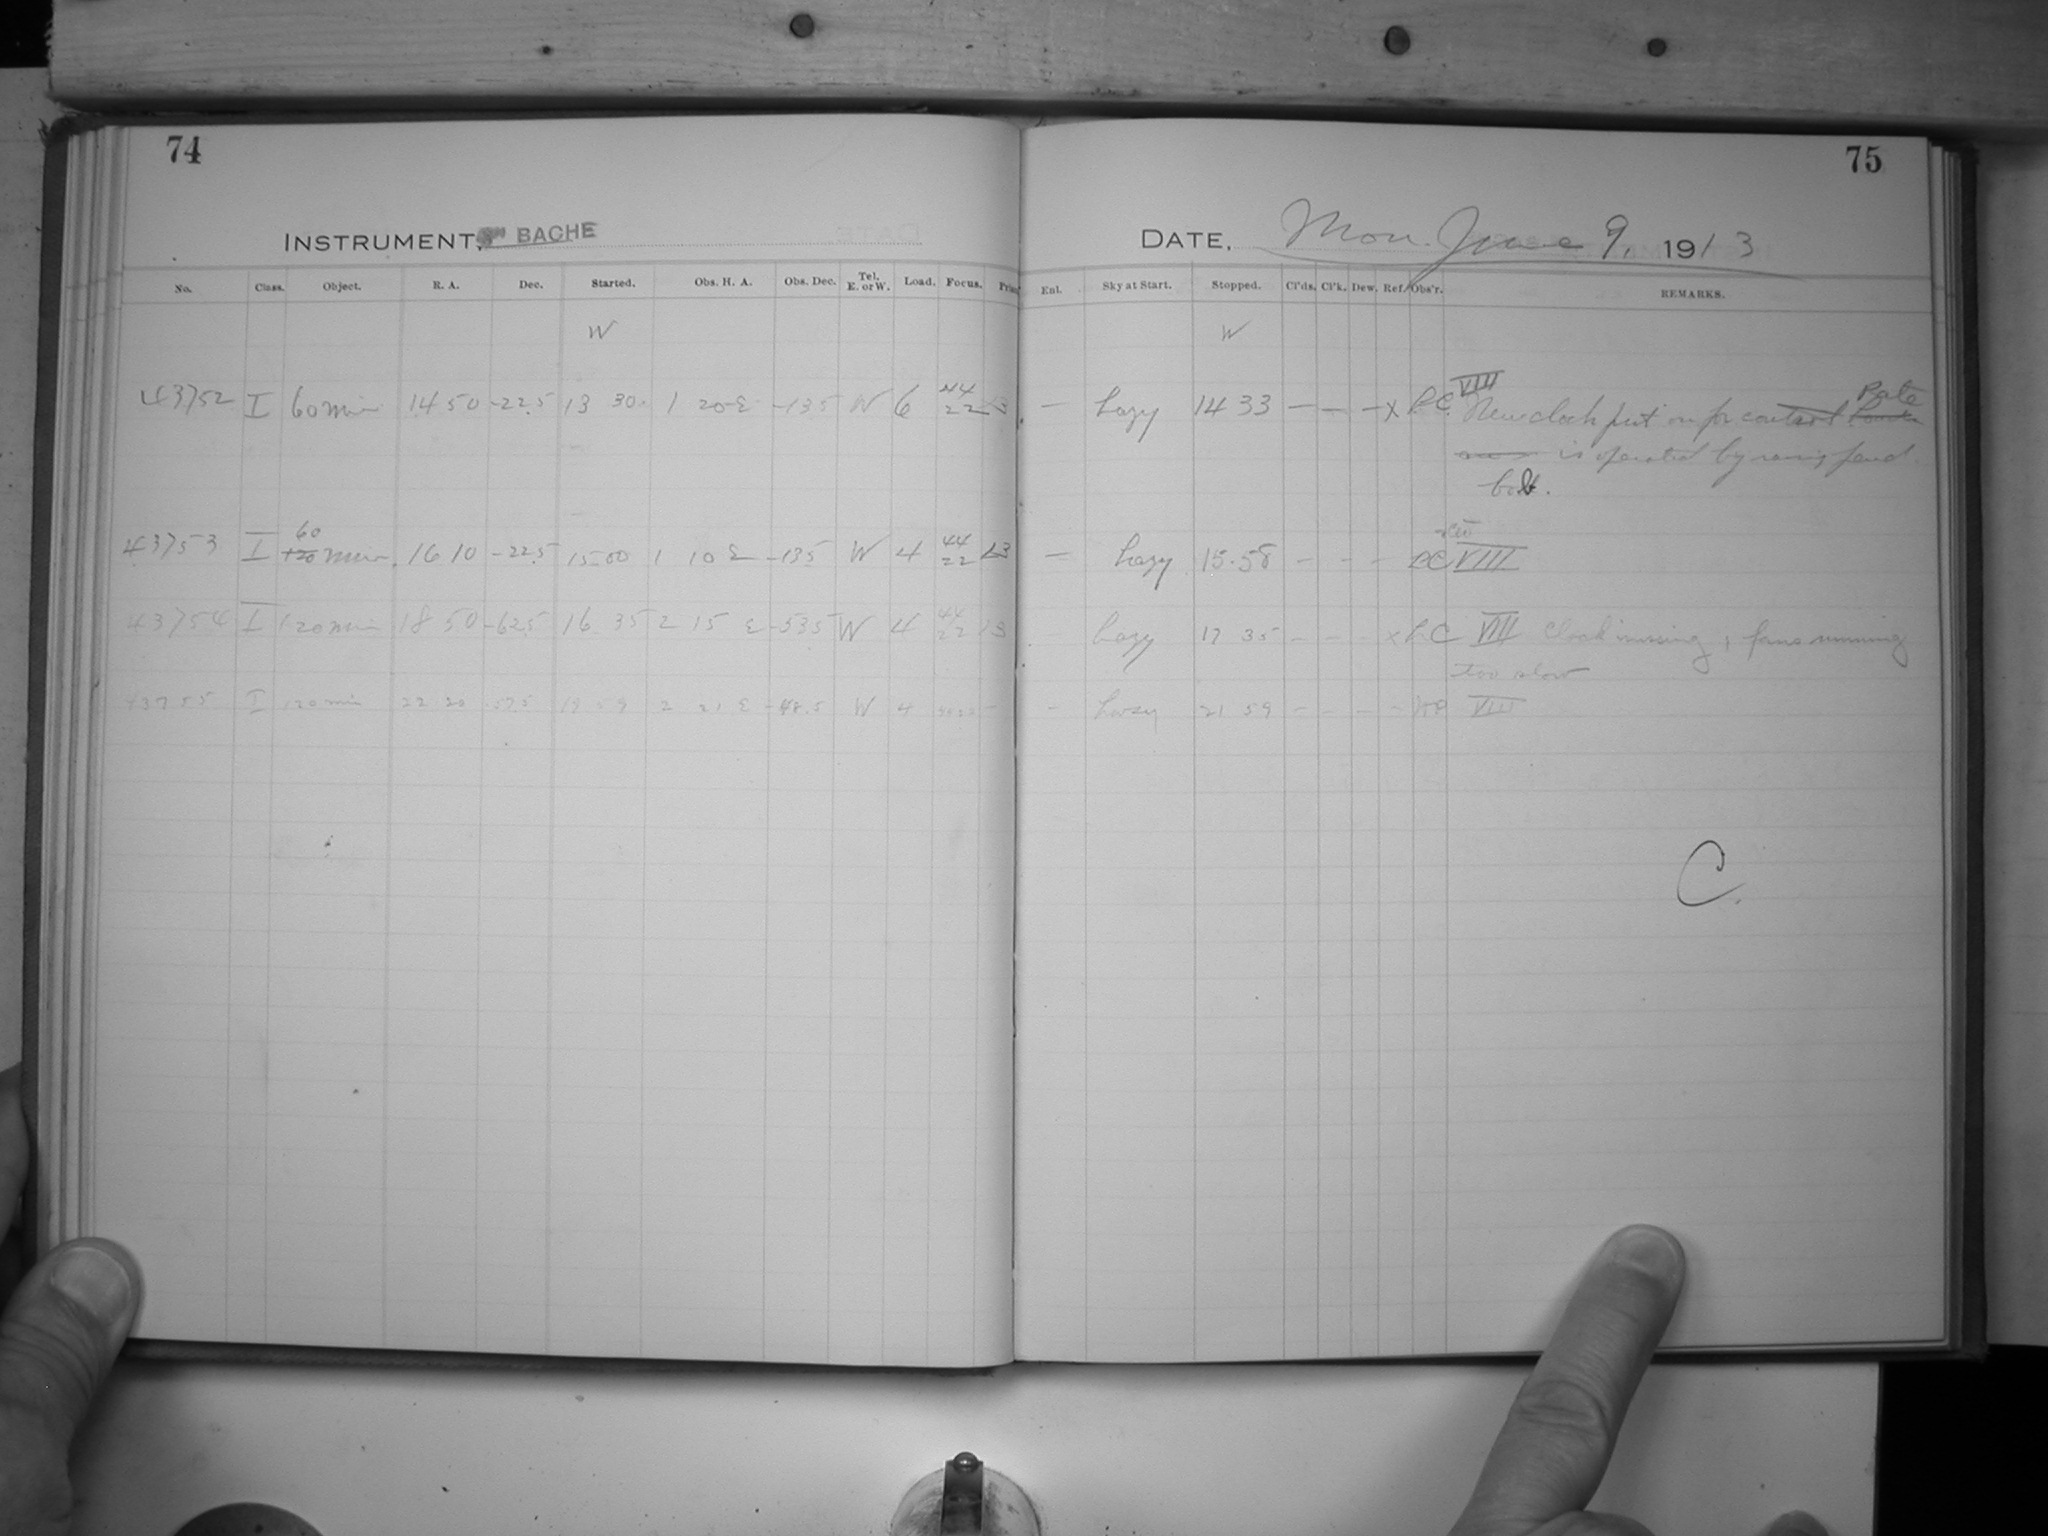 74
INSTRUMENT, 8" BACHE
No. Class. Object. R. A. Dec. Started. Obs. H. A. Obs. Dec. Tel. E. or W. Load. Focus.
W
43752 I 60 min 14 50 -22.5 13 30 1 20 E -13.5 W 6 44 22 13
43753 I 60 120 min. 16 10 -22.5 15 00 1 10 E -13.5 W 4 44 22 13
43754 I 120 min 18 50 -62.5 16 35 2 15 E -53.5 W 4 44 22 13
43755 I 120 min 22 20 -57.5 19 59 2 21 E -48.5 W 4 -
75
DATE, Mon. June 9, 1913
Enl. Sky at Start. Stopped. Cl'ds. Cl'k. Dew. Ref. Obs'r. REMARKS.
W
- hazy 14 33 - - - x VIII New clock put on for control Rate
is operated by pend.
bob.
- hazy 15.58 - - - VIII
- hazy 17 35 - - - x LC VIII Clock missing, fans running
too slow
- hazy 21 59 - - - - VIII
C.